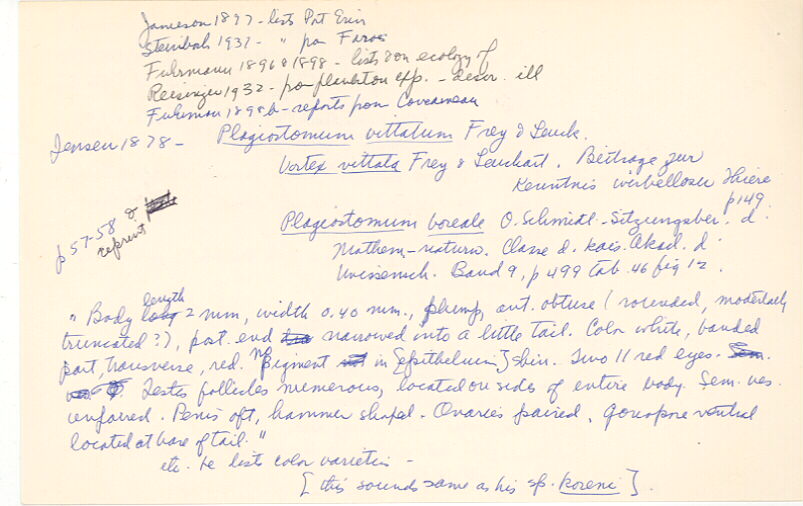 Jameson 1897 - lists Port Erin
Steinbock 1931 - " from Faroes
Fuhrmann 1896 & 1898 - lists & on ecology of
Reisinger 1932 - from plankton exp. - descr. ill
Fuhrman 1898b - reports from Concarneau
Jensen 1878 - Plagiostomum vittatum Frey & Leuck.
Vortex vittata Frey & Leuckart. Beitrage zur
Kenntnis wirbelloser Thiere
p149.
p 57-58 of
reprint
Plagiostomum boreale O. Schmidt. Sitzungsber. d.
Mathem-naturw. Classe d. kais. Akad. d.
Wissensch. Band 9, p 499 tab. 46 fig 12.
" Body length 2 mm, width 0.40 mm., plump, ant. obtuse (rounded, moderately
truncated ?), post. end narrowed into a little tail. Color white, banded
part, transverse, red. Pigment in [epithelium] skin. Two || red eyes.
Testes follicles numerous, located on sides of entire body. Sem. ves.
unpaired. Penis oft, hammer shaped - Ovaries paired, gonopore ventral
located at base of tail. "
etc. he lists color varieties -
[this sounds same as his sp. koreni].